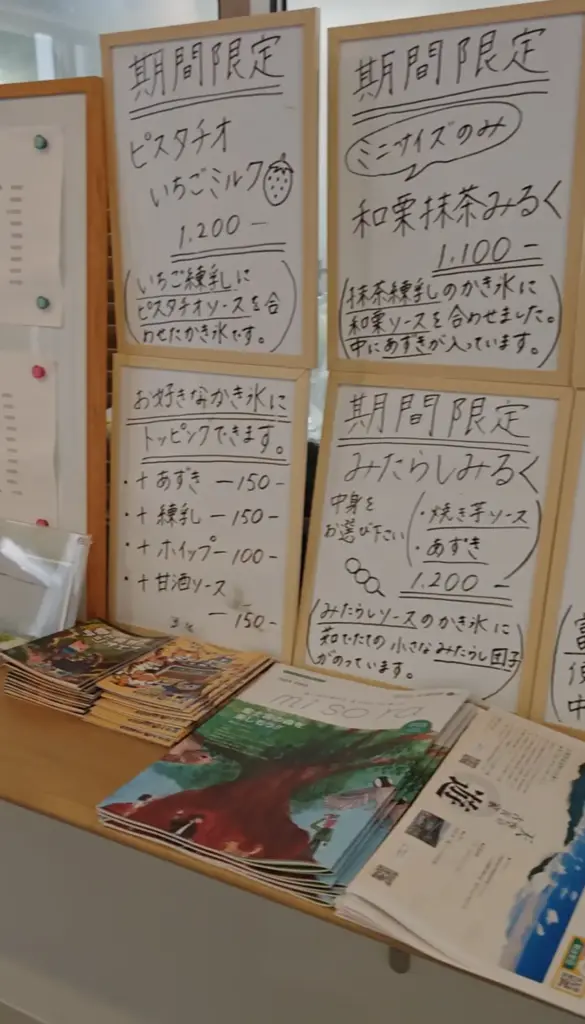 期間限定
ピスタチオ
いちごミルク
1.200-
(いちご練乳に
ピスタチオソースを合
わせたかき氷です。)
期間限定
ミニサイズのみ
和栗抹茶みるく
1.100-
(抹茶練乳のかき氷に
和栗ソースを合わせました。
中にあずきが入っています。)
お好きなかき氷に
トッピングできます。
・+あずき-150-
・+練乳-150-
・+ホイップ-100-
・+甘酒ソース
-150-
期間限定
みたらしみるく
中身を
お選び下さい
(・焼き芋ソース
・あずき)
1.200-
(みたらしソースのかき氷に
茹でたての小さなみたらし団子
がのっています。)
遊